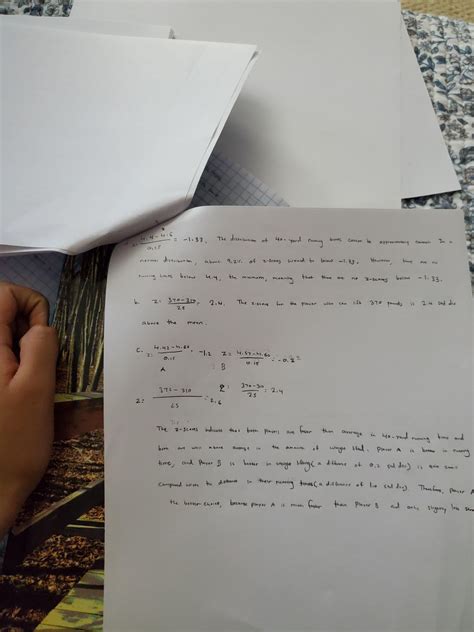 z = 4.4-4.6 / 0.15 = -1.33. The distribution of 40-yard running times cannot be approximately normal. In a
normal distribution, about 9.2% of z-scores would be below -1.33. However, there are no
running times below 4.4, the minimum, meaning that there are no z-scores below -1.33.
b. z = 370-310 / 25 = 2.4. The z-score for the player who can lift 370 pounds is 2.4 std dev
above the mean.
c. z = -1.2 z = = -0.2
A B
z: = 2.6 370-310 / 25 = 2.4
The z-scores indicate that both players are faster than average in 40-yard running time and
both are above average in the amount of weight lifted. Player A is better in running
time, and Player B is better in weight lifting (a difference of 0.2 std dev) is
compared to the difference in their running times (a difference of 1.0 std dev). Therefore, Player A
the better choice, because Player A is much faster than Player B and only slightly less